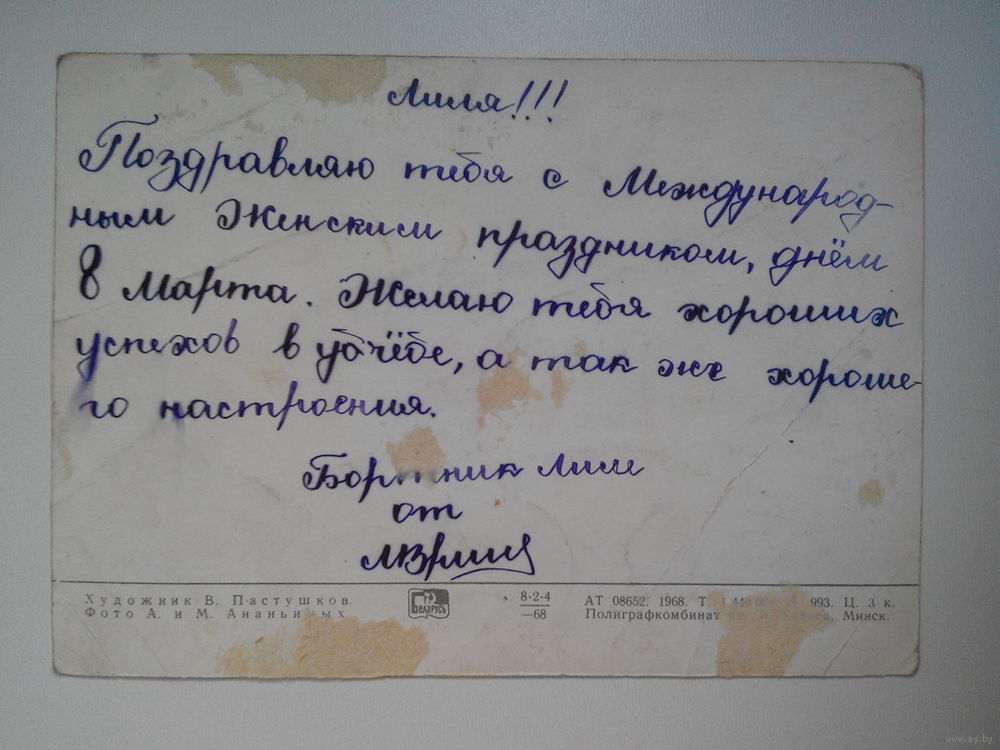 Лиля!!!
Поздравляю тебя с Международ-
ным Женским праздником, днём
8 Марта. Желаю тебя хороших
успехов в учёбе, а так же хороше-
го настроения.
Бортник Лили
от
Художник В. Пастушков.
Фото А. и М. Ананьиных.
Беларусь
8-2-4
—68
АТ 08652. 1968. 993. Ц. 3 к.
Полиграфкомбинат Минск.
www.ay.by